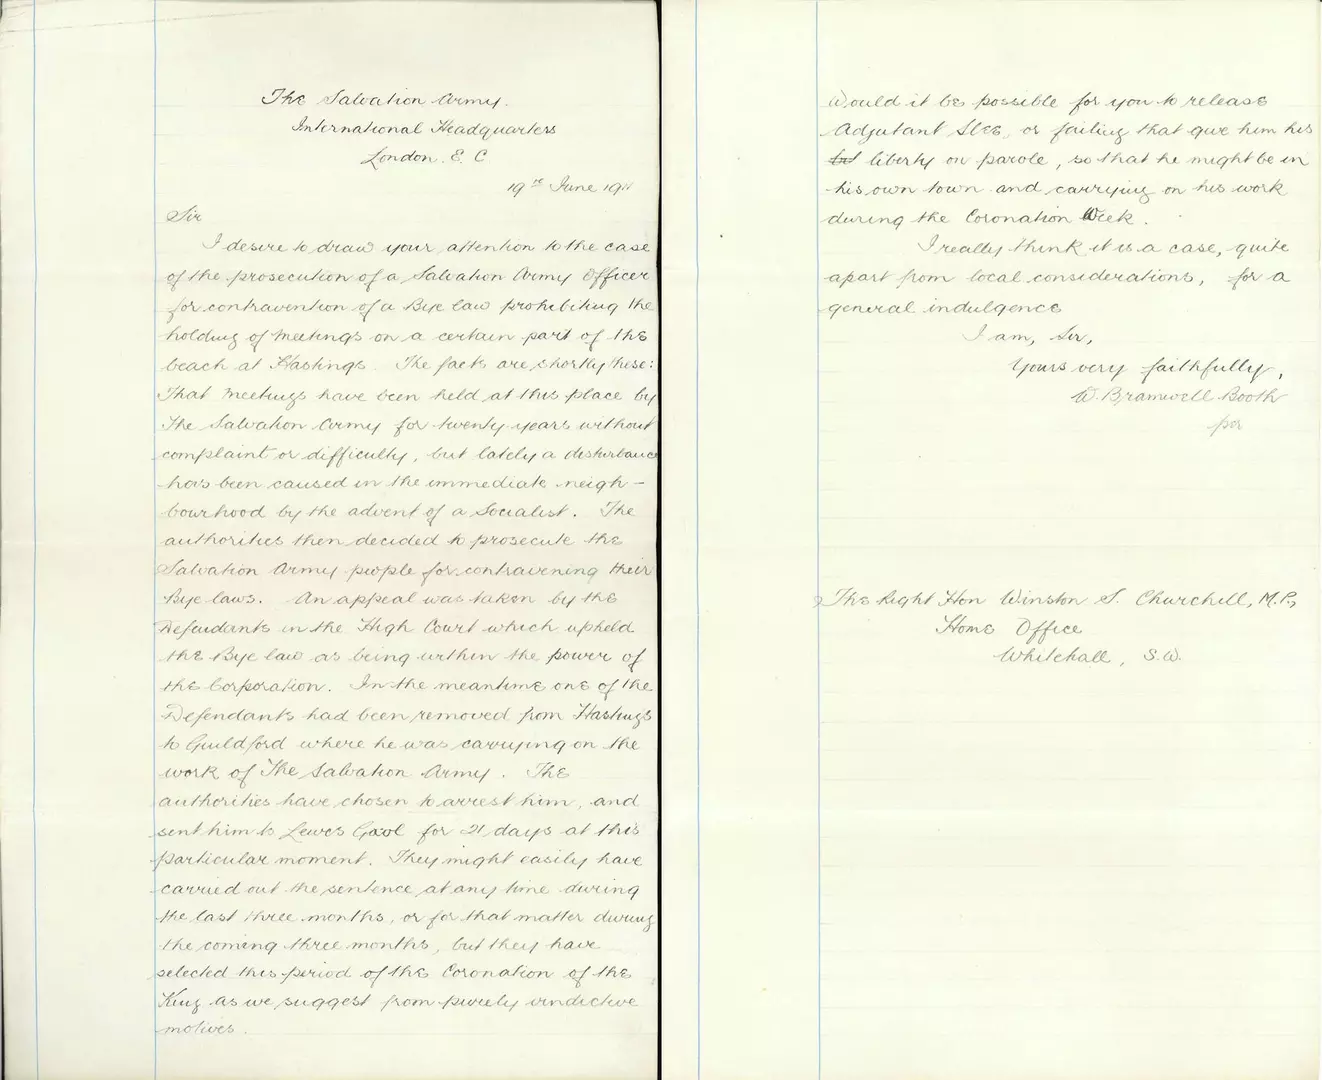 The Salvation Army.
International Headquarters
London. E. C
19th June 1911
Sir
I desire to draw your attention to the case
of the prosecution of a Salvation Army Officer
for contravention of a Bye law prohibiting the
holding of Meetings on a certain part of the
beach at Hastings. The facts are shortly these:
That Meetings have been held at this place by
The Salvation Army for twenty years without
complaint or difficulty, but lately a disturbance
has been caused in the immediate neigh-
bourhood by the advent of a Socialist. The
authorities then decided to prosecute the
Salvation Army people for contravening their
Bye laws. An appeal was taken by the
Defendants in the High Court which upheld
the Bye law as being within the power of
the Corporation. In the meantime one of the
Defendants had been removed from Hastings
to Guildford where he was carrying on the
work of The Salvation Army. The
authorities have chosen to arrest him, and
sent him to Lewes Gaol for 21 days at this
particular moment. They might easily have
carried out the sentence at any time during
the last three months, or for that matter during
the coming three months, but they have
selected this period of the Coronation of the
King as we suggest from purely vindictive
motives.
Would it be possible for you to release
Adjutant, or failing that give him his
liberty on parole, so that he might be in
his own town and carrying on his work
during the Coronation Week.
I really think it is a case, quite
apart from local considerations, for a
general indulgence
I am, Sir,
Yours very faithfully,
W. Bramwell Booth
per
The Right Hon Winston S. Churchill, M.P,
Home Office
Whitehall, S.W.